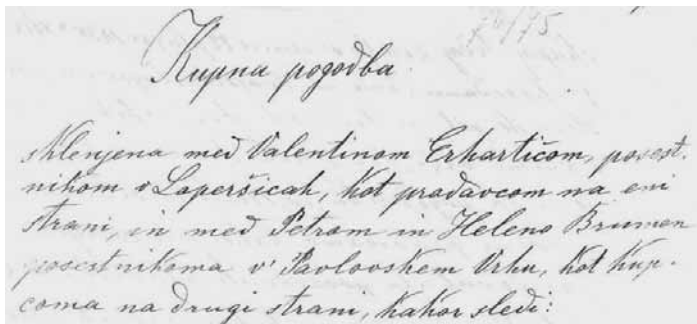 70/75
Kupna pogodba.
sklenjena med Valentinom Erhartičom, posest-
nikom v Laperšicah, kot prodavcom na eni
strani, in med Petrom in Heleno Brumen
posestnikoma v Pavlovskem Vrhu, kot kup-
coma na drugi strani, kakor sledi: